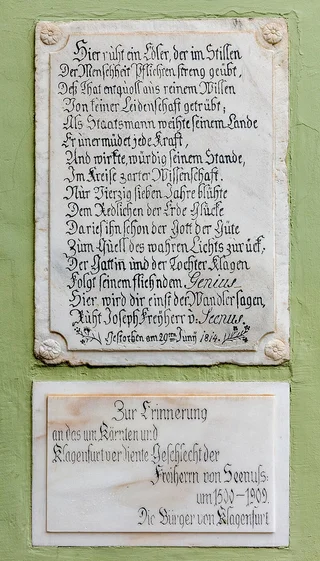 Hier ruht ein Edler, der im Stillen
Der Menschheit Pflichten streng geübt,
Deß That entquoll aus reinem Willen
Von keiner Leidenschaft getrübt;
Als Staatsmann weihte seinem Lande
Er unermüdet jede Kraft,
Und wirkte, würdig seinem Stande,
Im Kreise zarter Wissenschaft.
Nur Vierzig sieben Jahre blühte
Dem Redlichen der Erde Glücke
Da rief ihn schon der Gott der Güte
Zum Quell des wahren Lichts zurück,
Der Gattin und der Tochter Klagen
Folgt seinem flieh'ndem Genius
Hier wird dir einst der Wandler sagen,
Ruht Joseph Freyherr v: Seenus,
Gestorben am 29ten Juny 1814.
Zur Erinnerung
an das um Kärnten und
Klagenfurt verdiente Geschlecht der
Freiherrn von Seenuss:
um 1500-1909.
Die Bürger von Klagenfurt